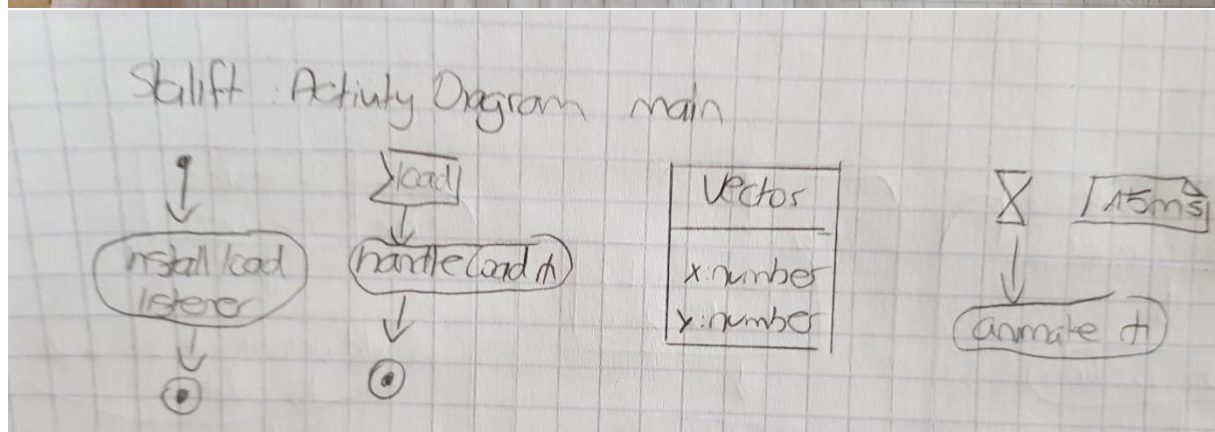 Skilift Activity Diagram main
load
install load
listener
handleLoad
Vector
x:number
y:number
15ms
animate